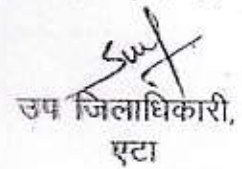 उप जिलाधिकारी,
एटा